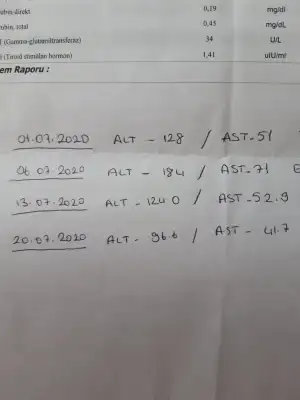 direkt 0,19 mg/dl
total 0,45 mg/dL
(Gamma-glutamiltransferaz) 34 U/L
(Tiroid stimülan hormon) 1,41 uIU/ml
em Raporu :
01.07.2020 ALT - 128 / AST-51
06.07.2020 ALT - 184 / AST-71 E
13.07.2020 ALT - 124.0 / AST-52.9
20.07.2020 ALT - 96.6 / AST - 41.7